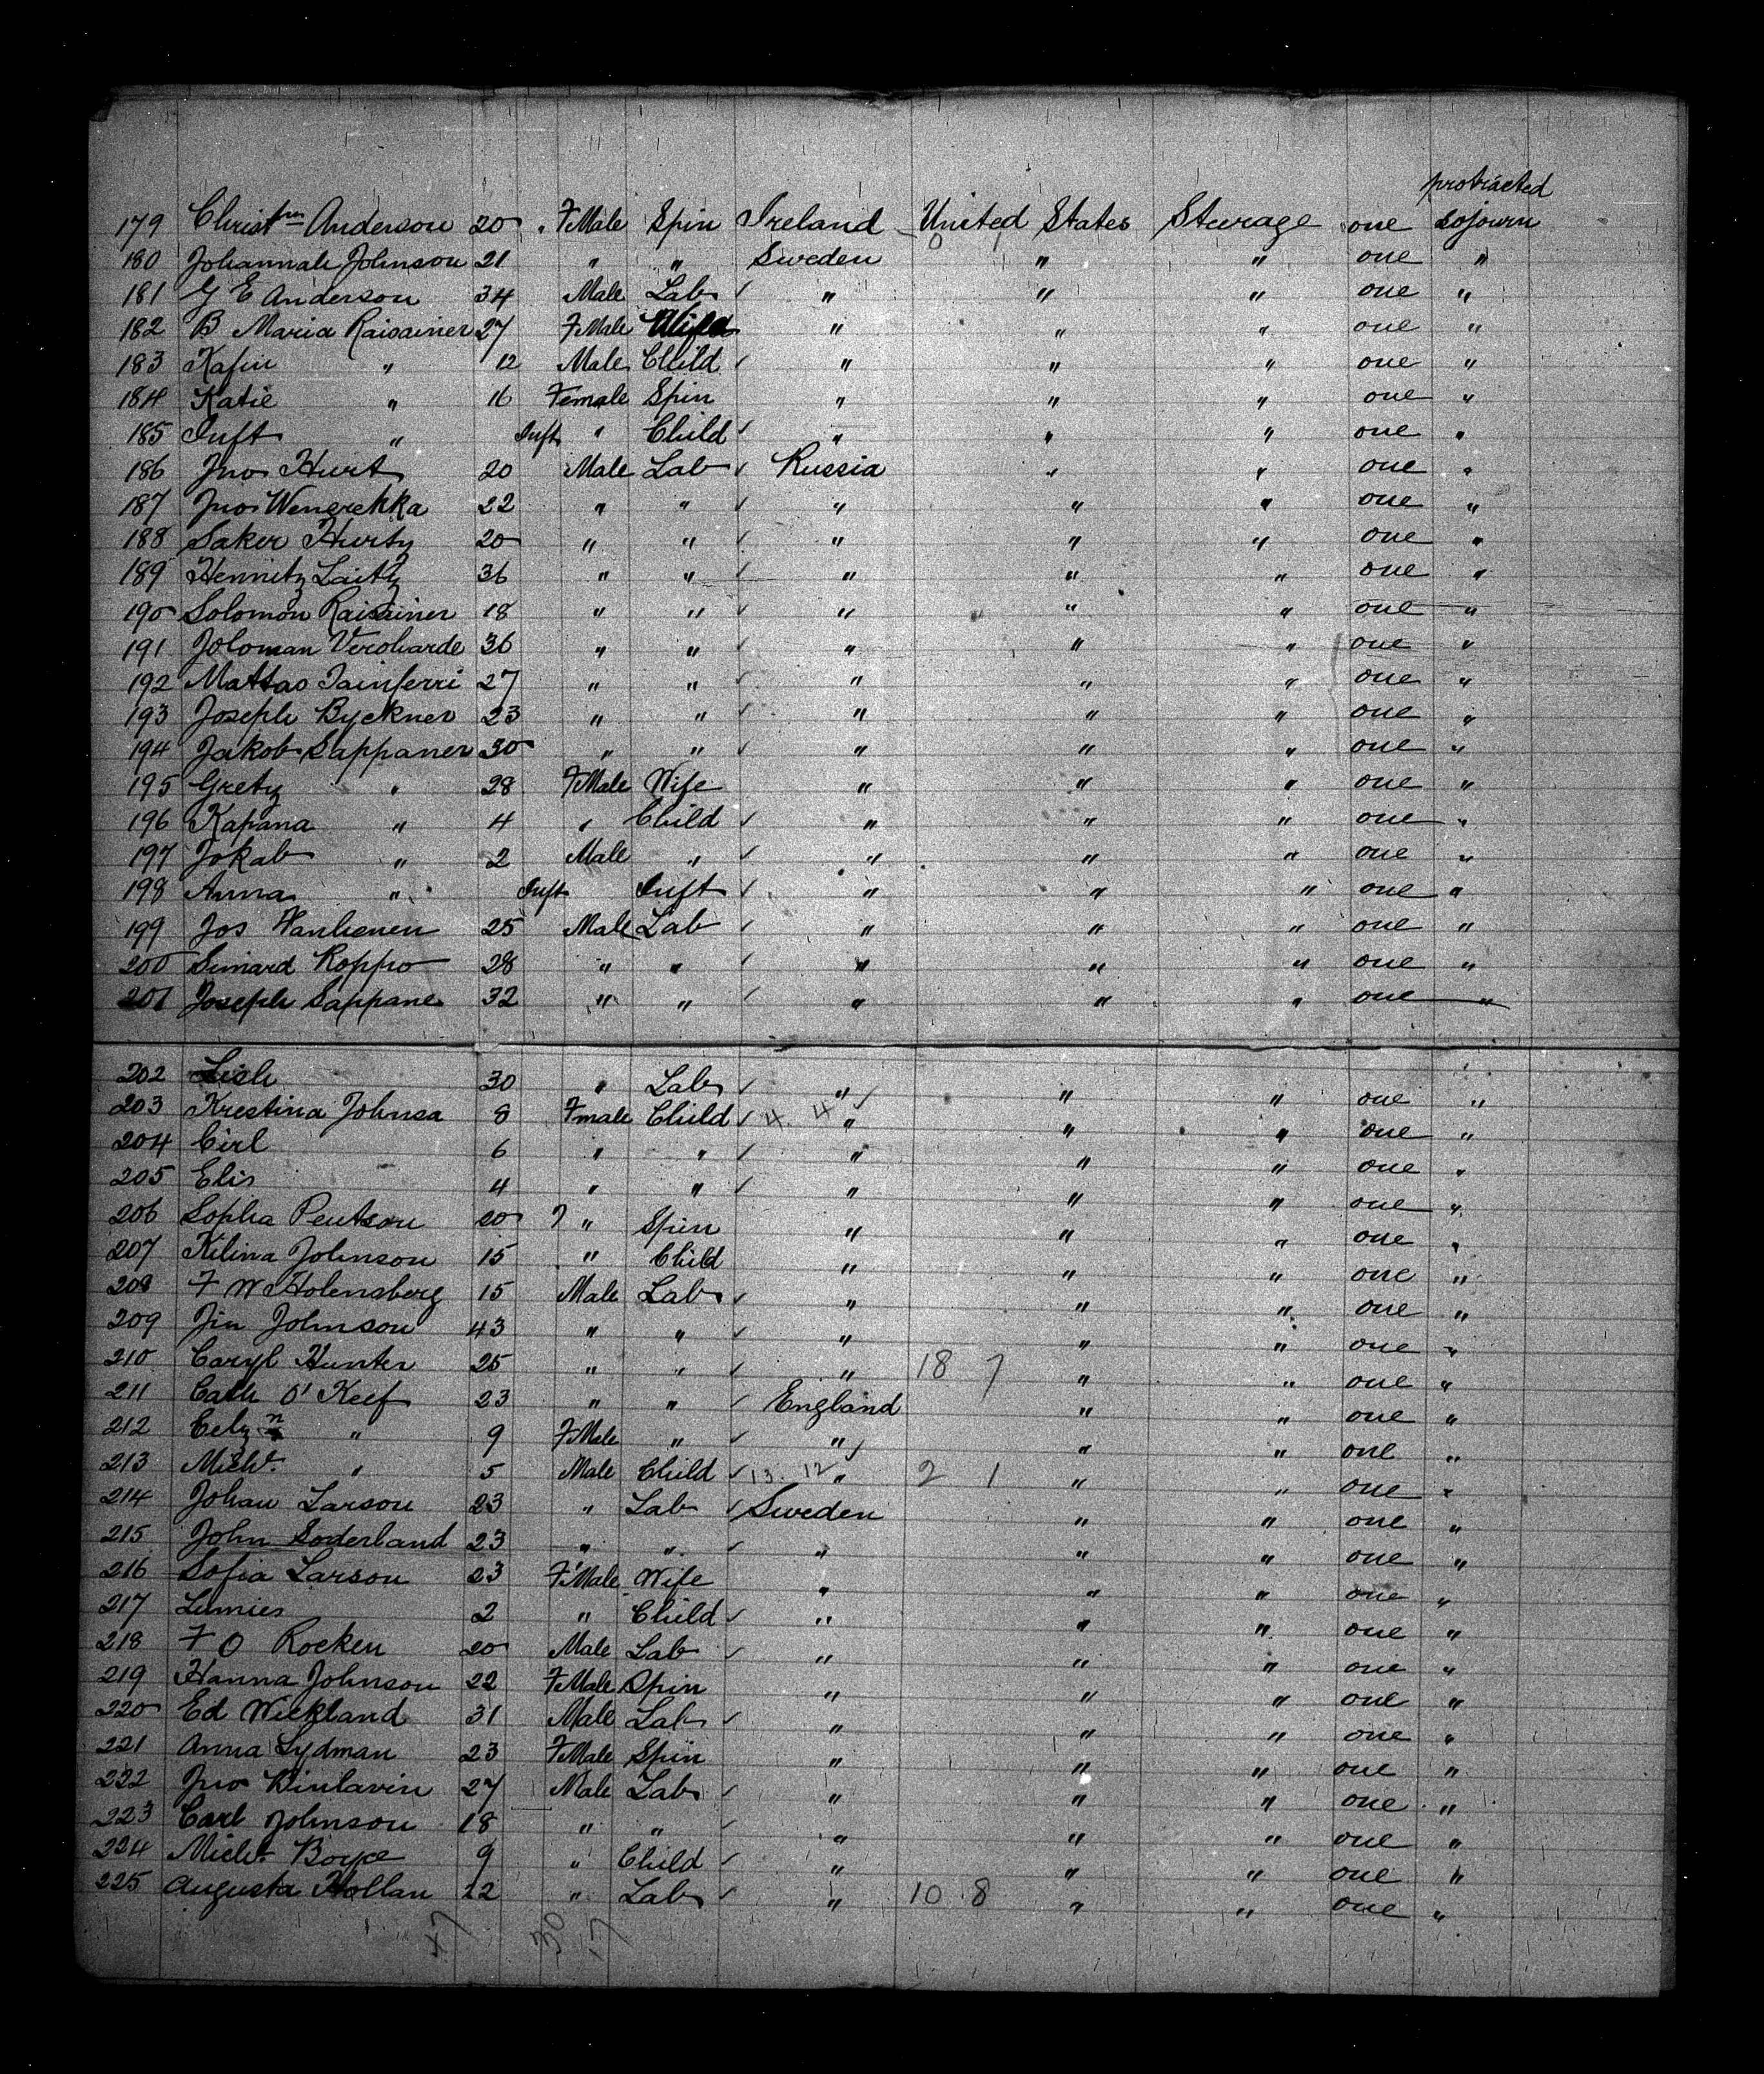 protracted
179 Christn Anderson 20 FMale Spin Ireland United States Steerage one sojourn
180 Johannah Johnson 21 " " Sweden " " one "
181 G E Anderson 34 Male Lab " " " one "
182 B Maria Raisainer 27 FMale Wife " " " one "
183 Kafin " 12 Male Child " " " one "
184 Katie " 16 Female Spin " " " one "
185 Inft " Inft " Child " " " one "
186 Jno Hurt 20 Male Lab Russia " " one "
187 Jno Wengrekka 22 " " " " " one "
188 Saker Hurtz 20 " " " " " one "
189 Hennitz Laitz 36 " " " " " one "
190 Solomon Raisainer 18 " " " " " one "
191 Joloman Veroharde 36 " " " " " one "
192 Mattao Iainferri 27 " " " " " one "
193 Joseph Byckner 23 " " " " " one "
194 Jakob Sappaner 30 " " " " " one "
195 Gretz " 28 FMale Wife " " " one "
196 Kapana " 4 " Child " " " one "
197 Jokab " 2 Male " " " " one "
198 Anna " Inft Inft " " " one "
199 Jos Hanhenen 25 Male Lab " " " one "
200 Simard Roppo 28 " " " " " one "
201 Joseph Sappane 32 " " " " " one "
202 Lish 30 " Lab " " " one "
203 Krestina Johnsa 8 Fmale Child 4. 4 " " " one "
204 Cirl 6 " " " " " one "
205 Elis 4 " " " " " one "
206 Sopha Pentson 20 F " Spin " " " one "
207 Kilina Johnson 15 " Child " " " one "
208 F W Holensberg 15 Male Lab " " " one "
209 Jin Johnson 43 " " " " " one "
210 Caryl Hunter 25 " " " 18 7 " " one "
211 Cath O' Keef 23 " " England " " one "
212 " 9 FMale " " " " one "
213 Michl " 5 Male Child 13. 12 " 2 1 " " one "
214 Johan Larson 23 " Lab Sweden " " one "
215 John Soderland 23 " " " " " one "
216 Sofia Larson 23 FMale Wife " " " one "
217 Lumies 2 " Child " " " one "
218 F O Rocken 20 Male Lab " " " one "
219 Hanna Johnson 22 FMale Spin " " " one "
220 Ed Wickland 31 Male Lab " " " one "
221 Anna Lydman 23 FMale Spin " " " one "
222 Jno Kinlavin 27 Male Lab " " " one "
223 Carl Johnson 18 " " " " " one "
224 Michl Boyce 9 " Child " " " one "
225 Augusta Hollan 22 " Lab " 10 8 " " one "
47 30 17